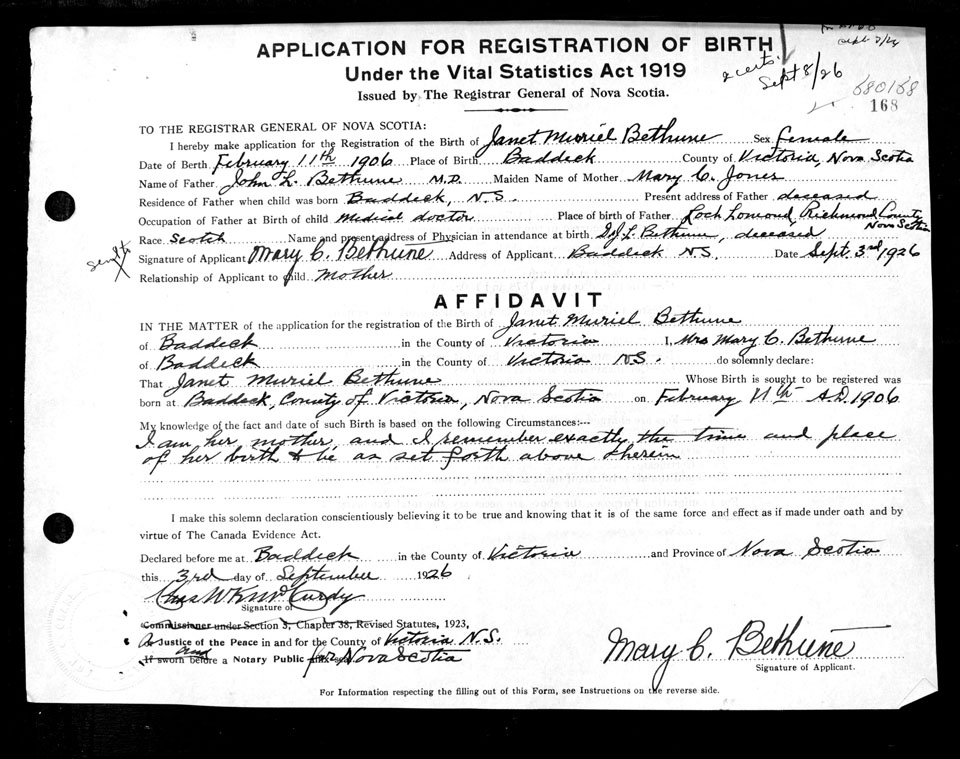 APPLICATION FOR REGISTRATION OF BIRTH
Under the Vital Statistics Act 1919
Issued by The Registrar General of Nova Scotia.
2 certs.
Sept 8/26
680168
168
TO THE REGISTRAR GENERAL OF NOVA SCOTIA:
I hereby make application for the Registration of the Birth of Janet Muriel Bethune Sex female
Date of Berth February 11th 1906 Place of Birth Baddeck County of Victoria, Nova Scotia
Name of Father John L. Bethune M.D. Maiden Name of Mother Mary C. Jones
Residence of Father when child was born Baddeck, N.S. Present address of Father deceased
Occupation of Father at Birth of child medical doctor Place of birth of Father Loch Lomond, Richmond County Nova Scotia
Race Scotch Name and present address of Physician in attendance at birth L. Bethune, deceased
Signature of Applicant Mary C. Bethune Address of Applicant Baddeck N.S. Date Sept. 3rd 1926
Relationship of Applicant to child Mother
AFFIDAVIT
IN THE MATTER of the application for the registration of the Birth of Janet Muriel Bethune
of Baddeck in the County of Victoria I, Mrs Mary C. Bethune
of Baddeck in the County of Victoria N.S. do solemnly declare:
That Janet Muriel Bethune Whose Birth is sought to be registered was
born at Baddeck, County of Victoria, Nova Scotia on February 11th A.D. 1906
My knowledge of the fact and date of such Birth is based on the following Circumstances:---
I am her mother, and I remember exactly the time and place
of her birth to be as set forth above therein
I make this solemn declaration conscientiously believing it to be true and knowing that it is of the same force and effect as if made under oath and by
virtue of The Canada Evidence Act.
Declared before me at Baddeck in the County of Victoria and Province of Nova Scotia
this 3rd day of September 1926
Chas W K McCurdy
Signature of
Commissioner under Section 3, Chapter 38, Revised Statutes, 1923,
A Justice of the Peace in and for the County of Victoria N.S.
If sworn before a Notary Public and for Nova Scotia
Mary C. Bethune
Signature of Applicant.
For Information respecting the filling out of this Form, see Instructions on the reverse side.